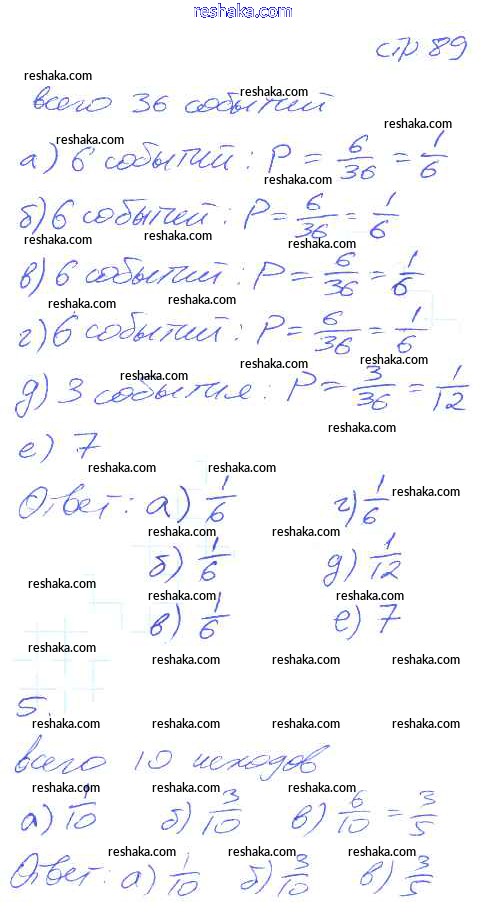 www.reshaka.com
стр 89
reshaka.com
всего 36 событий
reshaka.com reshaka.com
а) 6 событий : P = 6/36 = 1/6
reshaka.com
б) 6 событий : P = 6/36 = 1/6
reshaka.com reshaka.com reshaka.com
в) 6 событий : P = 6/36 = 1/6
reshaka.com reshaka.com
г) 6 событий : P = 6/36 = 1/6
reshaka.com reshaka.com
д) 3 события : P = 3/36 = 1/12
reshaka.com
е) 7
reshaka.com reshaka.com
Ответ: а) 1/6 г) 1/6
reshaka.com
reshaka.com reshaka.com
б) 1/6 д) 1/12
reshaka.com
reshaka.com reshaka.com
в) 1/6 е) 7
reshaka.com reshaka.com reshaka.com
5.
reshaka.com reshaka.com reshaka.com
всего 10 исходов
reshaka.com reshaka.com reshaka.com
а) 1/10 б) 3/10 в) 6/10 = 3/5
reshaka.com reshaka.com reshaka.com
Ответ: а) 1/10 б) 3/10 в) 3/5